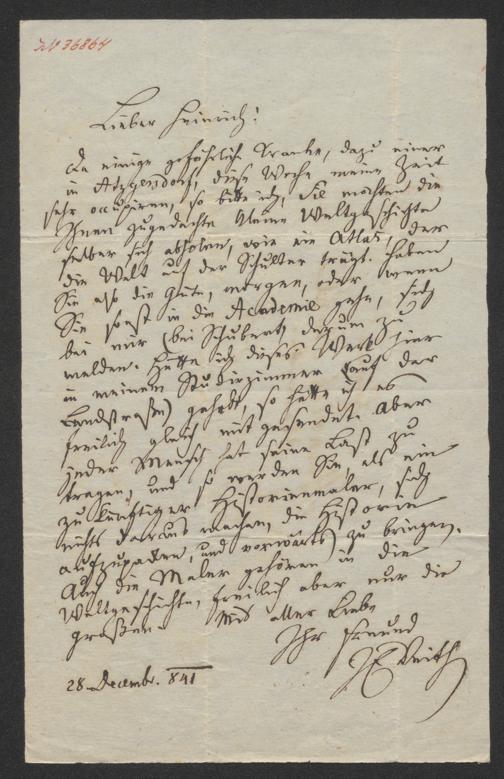 IN 36864
Lieber Heinrich!
Da einige gefährlich Kranke, dazu einer
in Atzgersdorf, diese Woche meine Zeit
sehr occupiren, so bitte ich, Sie möchten die
Ihnen zugedachte kleine Weltgeschichte
selber sich abholen, wie ein Atlas, der
die Welt auf der Schulter trägt. Haben
Sie also die Güte, morgen, oder wenn
Sie sonst in die Academie gehn, sich
bei mir (bei Schubert) darum zu
melden. Hätte ich dieses Werk hier
in meinem Studirzimmer (auf der
Landstraße) gehabt, so hätte ich es
freilich gleich mitgesendet. Aber
jeder Mensch hat seine Last zu
tragen, und so werden Sie, als ein
zukünftiger Historienmaler, sich
nichts daraus machen, die Historie
aufzupacken, und vorwärts zu bringen.
Auch die Maler gehören in die
Weltgeschichte, freilich aber nur die
großen. Mit aller Liebe
Ihr Freund
JE Veith
28 Decembr. 841